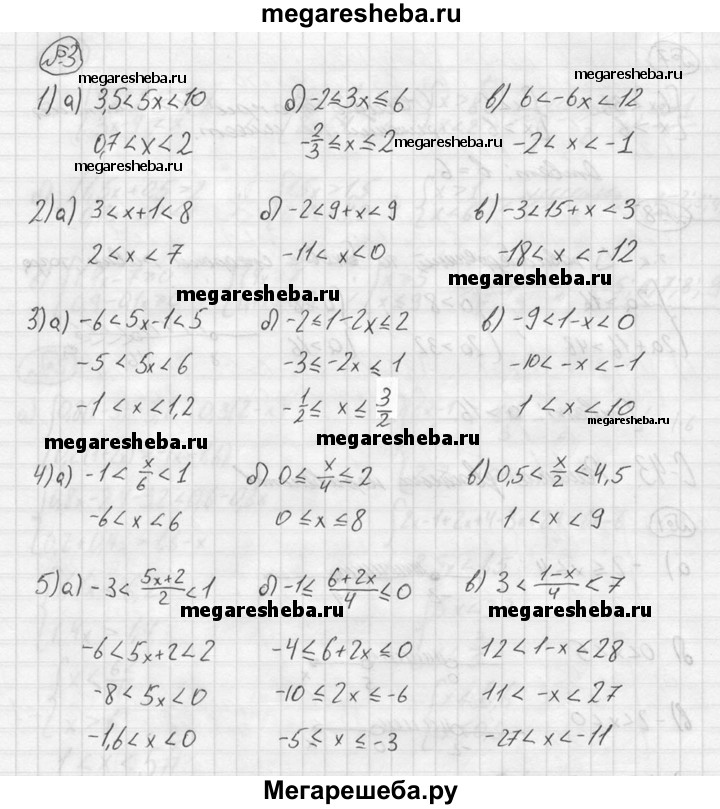 megaresheba.ru
№3
megaresheba.ru megaresheba.ru
1) а) 3,5<5x<10 б) -2≤3x≤6 в) 6<-6x<12
0,7<x<2 -2/3≤x≤2 -2<x<-1
megaresheba.ru megaresheba.ru
2) а) 3<x+1<8 б) -2<9+x<9 в) -3<15+x<3
2<x<7 -11<x<0 -18<x<-12
megaresheba.ru megaresheba.ru
3) а) -6<5x-1<5 б) -2≤1-2x≤2 в) -9<1-x<0
-5<5x<6 -3≤-2x≤1 -10<-x<-1
-1<x<1,2 -1/2≤x≤3/2 1<x<10
megaresheba.ru megaresheba.ru megaresheba.ru
4) а) -1<x/6<1 б) 0≤x/4≤2 в) 0,5<x/2<4,5
-6<x<6 0≤x≤8 1<x<9
5) а) -3<(5x+2)/2<1 б) -1≤(6+2x)/4≤0 в) 3<(1-x)/4<7
megaresheba.ru megaresheba.ru
-6<5x+2<2 -4≤6+2x≤0 12<1-x<28
-8<5x<0 -10≤2x≤-6 11<-x<27
-1,6<x<0 -5≤x≤-3 -27<x<-11
Мегарешеба.ру